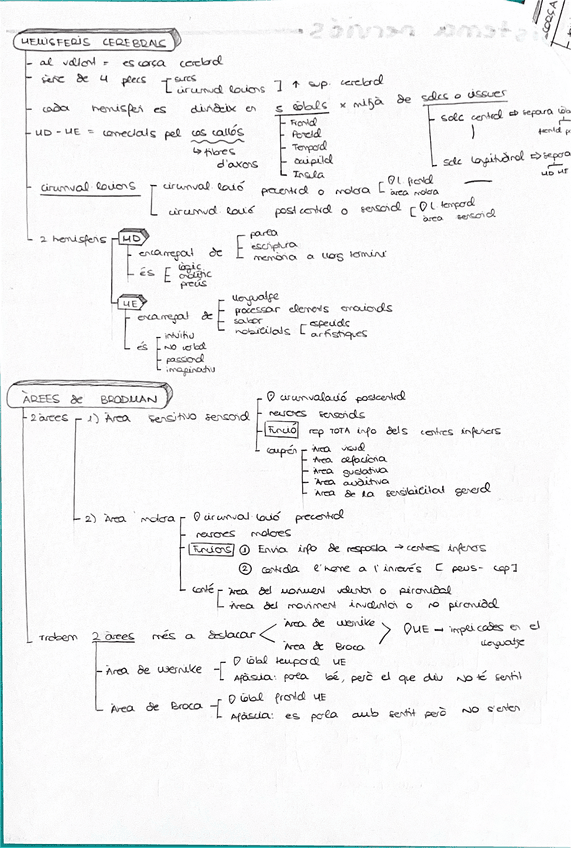 HEMISFERIS CEREBRALS
al voltant = escorça cerebral
sèrie de 4 plecs
solcs
circumval·lacions ] ↑ sup. cerebral
cada hemisferi es divideix en 5 lòbuls x mitjà de solcs o cissures
Frontal
Parietal
Temporal
Occipital
Insula
solc central ⇒ separa
solc longitudinal ⇒ separa
HD HE
HD - HE = connectats pel cos callós
↳ fibres d'axons
circumval·lacions
circumval·lació precentral o motora [ l. frontal
àrea motora
circumval·lació postcentral o sensorial [ l. temporal
àrea sensorial
2 hemisferis
HD
encarregat de
parla
escriptura
memòria a llarg termini
és
lògic
analític
precís
HE
encarregat de
llenguatge
processar elements emocionals
sabor
habilitats [ especials
artístiques
és
intuïtiu
NO verbal
passional
imaginatiu
ÀREES de BRODMAN
2 àrees
1) Àrea sensitivo sensorial
circumval·lació postcentral
neurones sensorials
Funció rep TOTA info dels centres inferiors
Àrea visual
Àrea olfactòria
Àrea gustativa
Àrea auditiva
Àrea de la sensibilitat general
2) Àrea motora
circumval·lació precentral
neurones motores
Funcions ① Envia info de resposta → centres inferiors
② controla l'home a l'inrevés [ peus - cap ]
conté
Àrea del moviment voluntari o piramidal
Àrea del moviment involuntari o no piramidal
Trobem 2 àrees més a destacar
Àrea de Wernike
Àrea de Broca
HE → implicades en el llenguatge
Àrea de Wernike
lòbul temporal HE
Afàsia: parla bé, però el que diu NO té sentit
Àrea de Broca
lòbul frontal HE
Afàsia: es parla amb sentit però NO s'entén